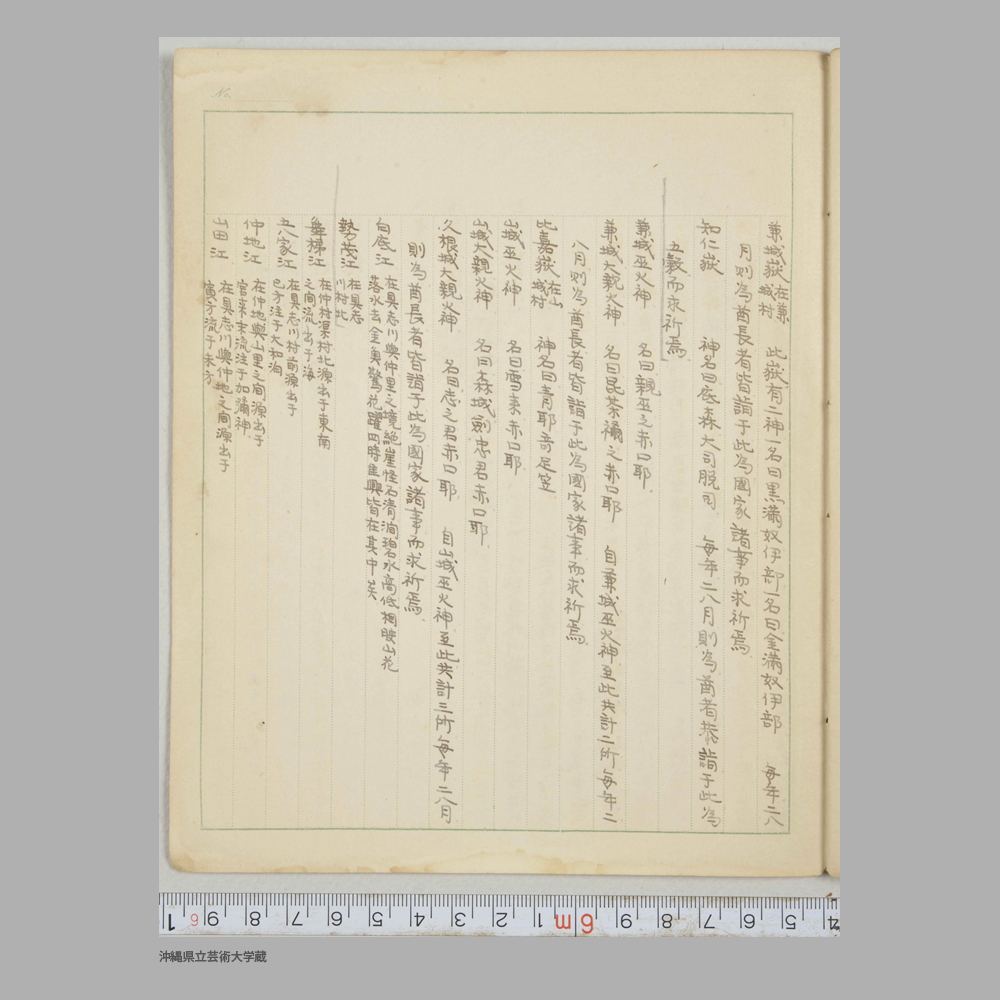 兼城嶽 在兼城村 此嶽有二神一名曰黒満奴伊部一名曰金満奴伊部 毎年二八
月則為酋長者皆詣于此為國家諸事而求祈焉
知仁嶽 神名曰底森大司脱司 毎年二八月則為酋者恭詣于此為
五穀而求祈焉
兼城巫火神 名曰親巫之赤口耶
兼城大親火神 名曰昆茶禰之赤口耶 自兼城巫火神至此共計二所毎年二
八月則為酋長者皆詣于此為國家諸事而求祈焉
比嘉嶽 在山城村 神名曰青耶奇足笠
山城巫火神 名曰雪来赤口耶
山城大親火神 名曰森城劍忠君赤口耶
久根城大親火神 名曰志之君赤口耶 自山城巫火神至此共計三所毎年二八月
則為酋長者皆詣于此為國家諸事而求祈焉
白底江 在具志川與仲里之境絶崖怪石清洞碧水高低相映山花
落水去金魚驚花躍四時佳興皆在其中矣
勢茂江 在具志川村北
舞梯江 在仲村渠村北源出于東南
之間流出于海
五八家江 在具志川村前源出于
巳方注于大和泊
仲地江 在仲地與山里之間源出于
宮来末流注于加禰神
山田江 在具志川與仲地之間源出于
寅方流于未方
No.
1 6 9 8 7 6 5 4 3 2 1 6m 9 8 7 6 5 4
沖縄県立芸術大学蔵